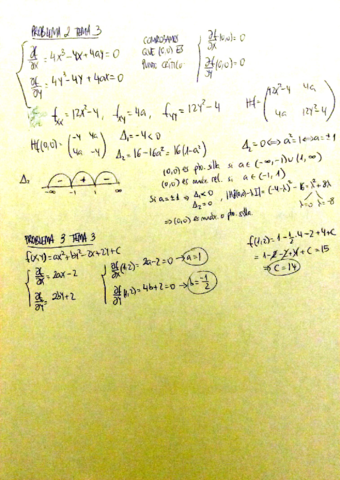 PROBLEMA 2 TEMA 3
∂f/∂x = 4x³-4x+4ay=0
∂f/∂y = 4y³-4y+4ax=0
COMPROBAMOS QUE (0,0) ES PUNTO CRÍTICO
∂f/∂x (0,0)=0
∂f/∂y (0,0)=0
fxx = 12x²-4, fxy = 4a, fyy = 12y²-4
Hf = (12x²-4 4a
4a 12y²-4)
Hf(0,0) = (-4 4a
4a -4)
Δ₁ = -4 < 0
Δ₂ = 16-16a² = 16(1-a²)
Δ₂ = 0 ⟺ a² = 1 ⟺ a = ±1
- + -
-∞ -1 1 ∞
(0,0) es pto. silla si a ∈ (-∞,-1) ∪ (1,∞)
(0,0) es máx. rel. si a ∈ (-1,1)
Si a=±1 ⇒ Δ₁<0
Δ₂=0
= (-4-λ)²-16 = λ²+8λ
λ=0 λ=-8
⇒ (0,0) es máx. o pto. silla
PROBLEMA 3 TEMA 3
f(x,y) = ax²+by²-2x+2y+C
∂f/∂x = 2ax-2
∂f/∂y = 2by+2
∂f/∂x (1,2) = 2a-2=0 → a=1
∂f/∂y (1,2) = 4b+2=0 → b=-1/2
f(1,2) = 1-1/2·4-2+4+C
= 1-2-2+4+C = 15
⇒ C=14